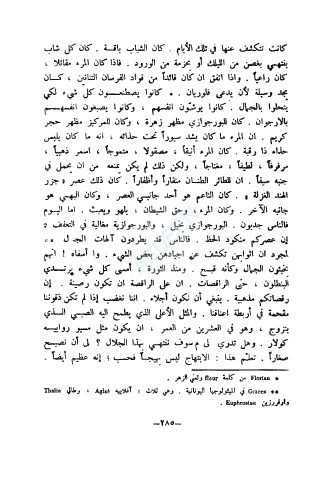 كانت تتكشف عنها في تلك الأيام . كان الشباب باقة . كان كل شاب
ينتهي بغصن من الليلك أو بحزمة من الورود . فاذا كان المرء مقاتلا ،
كان راعياً . واذا اتفق ان كان قائدا من قواد الفرسان التنانين ، كان
يجد وسيلة لأن يدعى فلوريان . * وكانوا يصطنعون كل شيء لكي
يتحلوا بالجمال . كانوا يوشون انفسهم ، وكانوا يصبغون انفسهم
بالأرجوان . كان للبورجوازي مظهر زهرة ، وكان للمركيز مظهر حجر
كريم . ان المرء ما كان يشد سيوراً تحت حذائه ، انه ما كان يلبس
حذاء ذا رقبة . كان المرء أنيقاً ، مصقولا ، متموجاً ، اسمر ذهبياً ،
مرفرفاً ، لطيفاً ، مغناجاً ، ولكن ذلك لم يكن يمنعه من ان يحمل في
جنبه سيفاً . ان للطائر الطنان منقاراً وأظفاراً . كان ذلك عصر « جزر
الهند الغزلة » . كان الناعم هو أحد جانبي العصر ، وكان البهي هو
جانبه الآخر . وكان المرء ، وحق الشيطان ، يلهو ويعبث . اما اليوم
فالناس جديون . البورجوازي بخيل ، والبورجوازية مغالية في التعفف ؛
إن عصركم منكود الحظ . فالناس قد يطردون آلهات الجمال **
لمجرد ان اثوابهن تكشف عن اجيادهن بعض الشيء . وا أسفاه ! انهم
يخبئون الجمال وكأنه قبيح . ومنذ الثورة ، أمسى كل شيء يرتدي
البنطلون ، حتى الراقصات . ان على الراقصة ان تكون رصينة . إن
رقصاتكم مذهبية . ينبغي أن نكون أجلاء . اننا نغضب إذا لم تكن ذقوننا
مقحمة في أربطة اعناقنا . والمثل الأعلى الذي يطمح اليه الصبي الذي
يتزوج ، وهو في العشرين من العمر ، ان يكون مثل مسيو روابيه
كولار . وهل تدري الى م سوف ننتهي بهذا الجلال ؟ الى أن نصبح
صغاراً . تعلّم هذا : الابتهاج ليس بهيجاً فحسب ؛ إنه عظيم أيضاً .
* Florian من كلمة fleur وتعني الزهر .
** Graces في الميثولوجيا اليونانية . وهي ثلاث : أغلاييه Aglaé ، وطالي Thalie
وأوفروزين Euphrosine .
-٢٨٥-